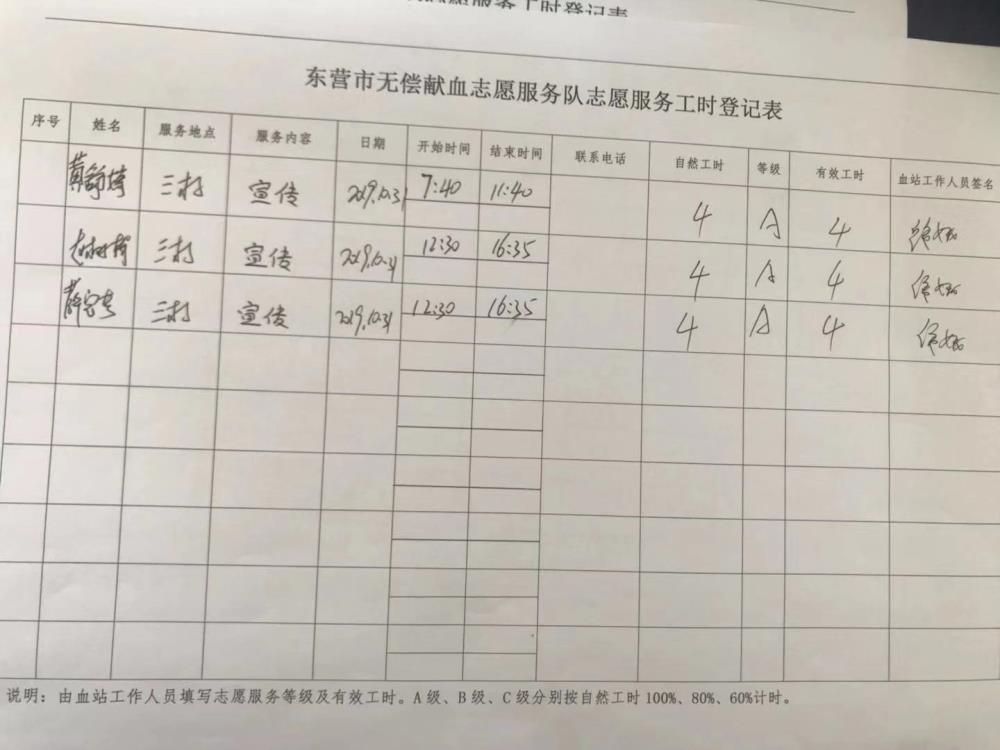 志愿服务工时登记表
东营市无偿献血志愿服务队志愿服务工时登记表
序号 姓名 服务地点 服务内容 日期 开始时间 结束时间 联系电话 自然工时 等级 有效工时 血站工作人员签名
三村 宣传 2019.10.31 7:40 11:40 4 A 4
三村 宣传 2019.10.31 12:30 16:35 4 A 4
三村 宣传 2019.10.31 12:30 16:35 4 A 4
说明：由血站工作人员填写志愿服务等级及有效工时。A 级、B 级、C 级分别按自然工时 100%、80%、60%计时。